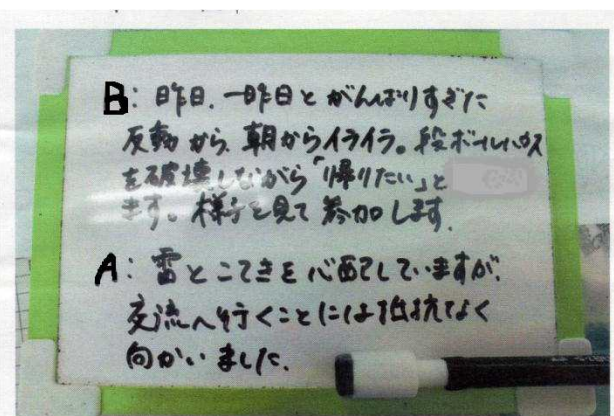 B: 昨日、一昨日とがんばりすぎた
反動から、朝からイライラ。段ボールハウス
を破壊しながら「帰りたい」と
きます。様子を見て参加します。
A: 雷とこてきを心配していますが、
交流へ行くことには抵抗なく
向かいました。